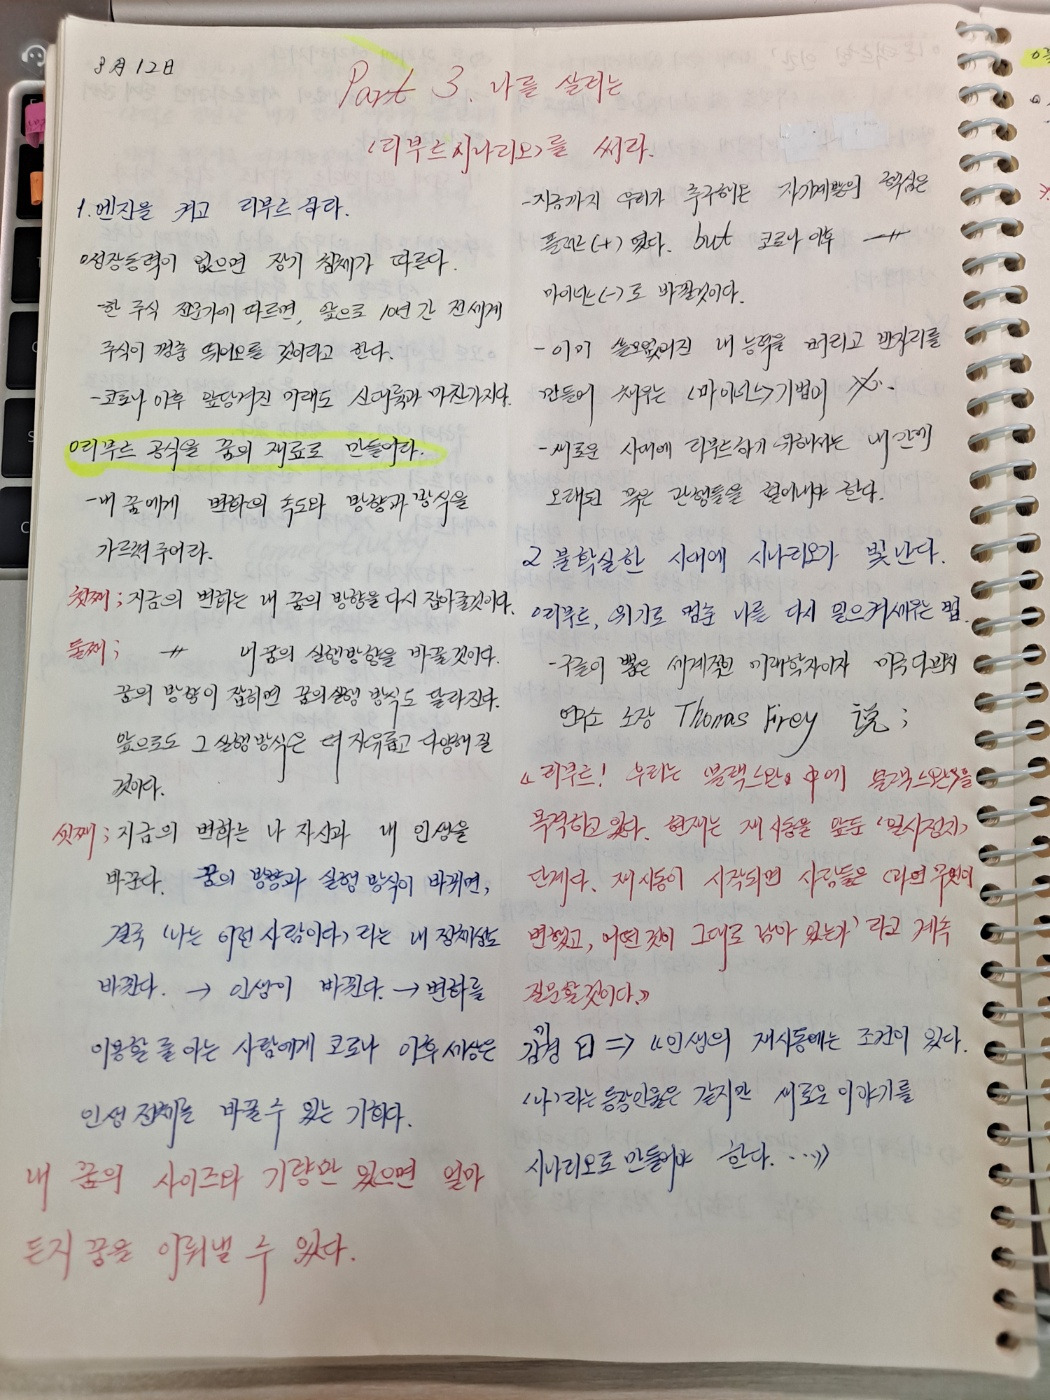 8月12日
Part 3. 나를 살리는
<리부트 시나리오>를 써라.
1. 엔진을 켜고 리부트 하라.
o성장동력이 없으면 장기 침체가 따른다.
-한 주식 전문가에 따르면, 앞으로 10년간 전세계
주식이 껑충 뛰어오를 것이라고 한다.
-코로나 이후 앞당겨진 미래도 신대륙과 마찬가지다.
o리부트 공식을 꿈의 재료로 만들어라.
-내 꿈에게 변화의 속도와 방향과 방식을
가르쳐 주어라.
첫째; 지금의 변화는 내 꿈의 방향을 다시 잡아줄것이다.
둘째; 〃 내 꿈의 실행방향을 바꿀것이다.
꿈의 방향이 잡히면 꿈의 실행 방식도 달라진다.
앞으로도 그 실행방식은 더 자유롭고 다양해 질
것이다.
셋째; 지금의 변화는 나 자신과 내 인생을
바꾼다. 꿈의 방향과 실행 방식이 바뀌면,
결국 <나는 이런 사람이다>라는 내 정체성도
바뀐다. → 인생이 바뀐다. → 변화를
이용할 줄 아는 사람에게 코로나 이후 세상은
인생 전체를 바꿀 수 있는 기회다.
내 꿈의 사이즈와 기량만 있으면 얼마
든지 꿈을 이뤄낼 수 있다.
-지금까지 우리가 추구하는 자기계발의 핵심은
플러스(+) 였다. but 코로나 이후 〃
마이너스(-)로 바뀔것이다.
-이미 쓸모없어진 내 능력을 버리고 빈자리를
만들어 채우는 <마이너스> 기법이
-새로운 시대에 리부트 하기 위해서는 내 안에
오래된 묵은 관행들을 덜어내야 한다.
2 불확실한 시대에 시나리오가 빛난다.
o리부트, 위기로 멈춘 나를 다시 일으켜 세우는 법.
-구글이 뽑은 세계적인 미래학자이자 미국 다빈치
연구소 소장 Thomas Firey 说;
《리부트! 우리는 <블랙스완> 中에 블랙스완>을
목격하고 있다. 현재는 재시동을 앞둔 <일시정지>
단계다. 재시동이 시작되면 사람들은 <과연 무엇이
변했고, 어떤 것이 그대로 남아 있는가>라고 계속
질문할 것이다.》
⇒ 《인생의 재시동에는 조건이 있다.
<나>라는 등장인물은 같지만 새로운 이야기를
시나리오로 만들어야 한다. …》